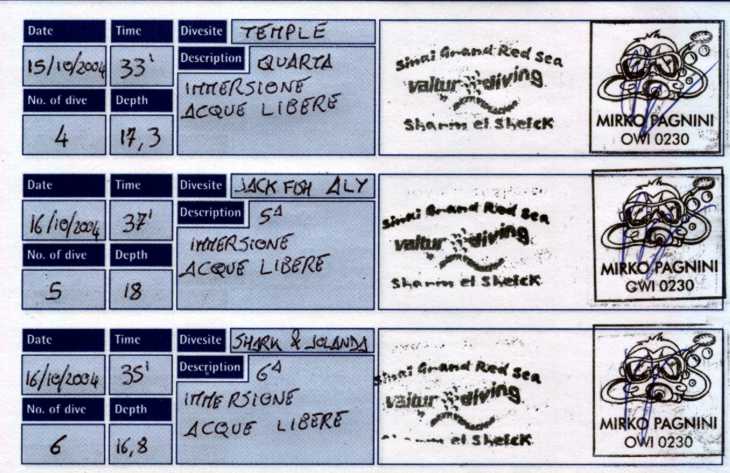 Date Time Divesite TEMPLE
15/10/2004 33' Description QUARTA
IMMERSIONE
No. of dive Depth ACQUE LIBERE
4 17,3
Sinai Grand Red Sea
valtur diving
Sharm el Sheick
MIRKO PAGNINI
OWI 0230
Date Time Divesite JACK FISH ALY
16/10/2004 37' Description 5ª
IMMERSIONE
No. of dive Depth ACQUE LIBERE
5 18
Sinai Grand Red Sea
valtur diving
Sharm el Sheick
MIRKO PAGNINI
OWI 0230
Date Time Divesite SHARK & JOLANDA
16/10/2004 35' Description 6ª
IMMERSIONE
No. of dive Depth ACQUE LIBERE
6 16,8
Sinai Grand Red Sea
valtur diving
el Sheick
MIRKO PAGNINI
OWI 0230